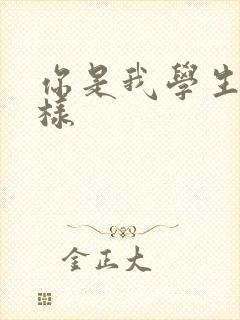 你是我學生
樣
金正大